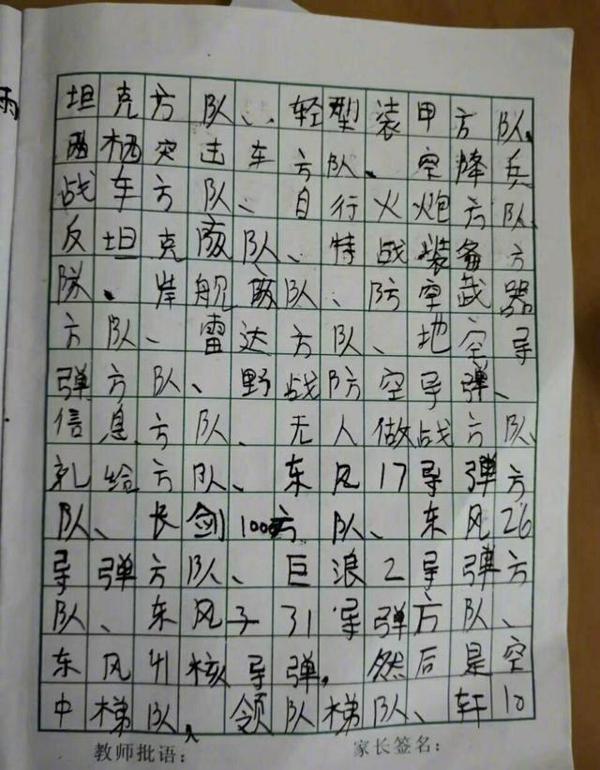 坦克方队、轻型装甲方队、
两栖突击车方队、空降兵
战车方队、自行火炮方队、
反坦克方队、特战装备方
队、岸舰方队、防空武器
方队、雷达方队、地空导
弹方队、野战防空导弹、
信息方队、无人做战方队、
礼给方队、东风17导弹方
队、长剑100方队、东风26
导弹方队、巨浪2导弹方
队、东风子31导弹方队、
东风41核导弹,然后是空
中梯队,领队梯队、轩10
教师批语: 家长签名: